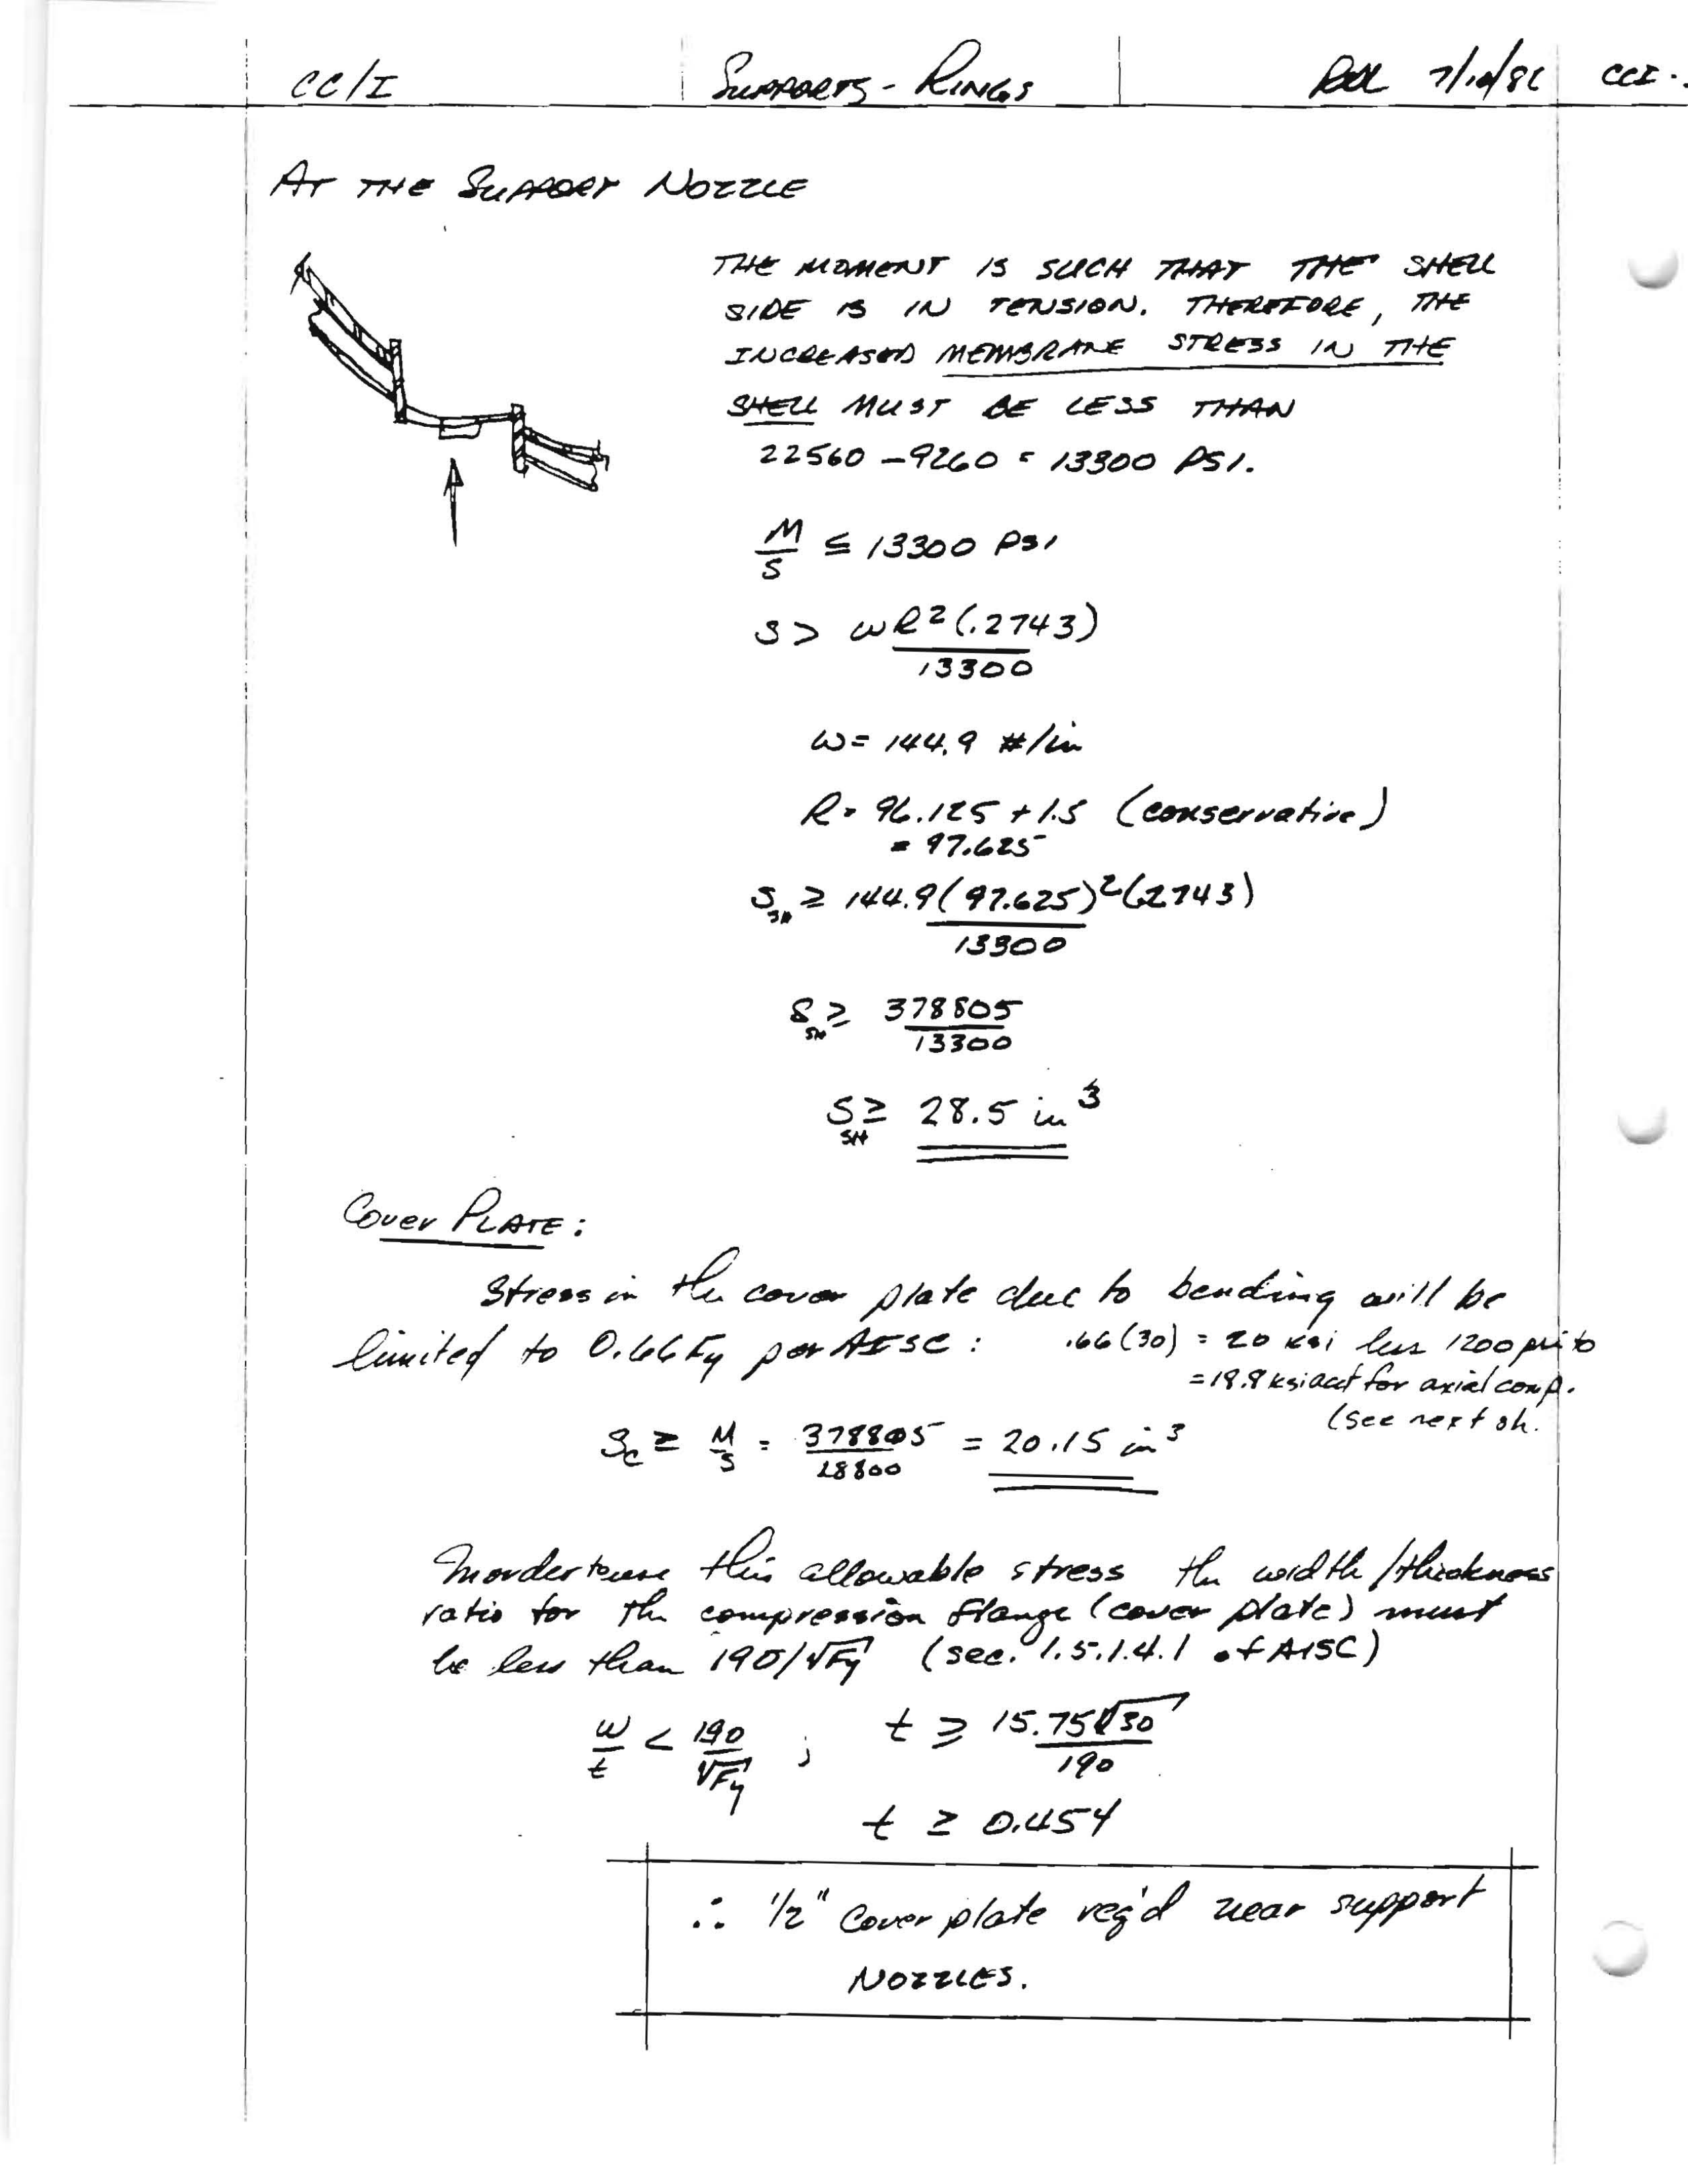 CC/I SUPPORTS - RINGS 7/10/86 CCI-
AT THE SUPPORT NOZZLE
THE MOMENT IS SUCH THAT THE SHELL
SIDE IS IN TENSION. THEREFORE, THE
INCREASED MEMBRANE STRESS IN THE
SHELL MUST BE LESS THAN
22560 - 9260 = 13300 PSI.
M/S ≤ 13300 PSI
S > wR²(.2743)/13300
w = 144.9 #/in
R = 96.125 + 1.5 (conservative)
= 97.625
S_SH ≥ 144.9(97.625)²(.2743)/13300
S_SH ≥ 378805/13300
S_SH ≥ 28.5 in³
COVER PLATE:
Stress in the cover plate due to bending will be
limited to 0.66Fy per AISC: .66(30) = 20 ksi less 1200 psi to
= 18.8 ksi acct for axial comp.
(see next sh.
S_c ≥ M/S = 378805/18800 = 20.15 in³
In order to use this allowable stress the width/thickness
ratio for the compression flange (cover plate) must
be less than 190/√Fy (sec. 1.5.1.4.1 of AISC)
w/t < 190/√Fy ; t ≥ 15.75√30/190
t ≥ 0.454
∴ 1/2" cover plate req'd near support
NOZZLES.